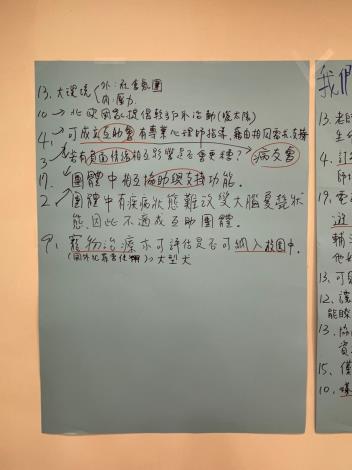 13. 大環境 外：社會氛圍
內：壓力
10 → 北歐國家提倡較多戶外活動(曬太陽)
4. 可成立互助會有專業心理師指導，藉由相同需求,支持
3 → 若有負面情緒相互影響是否會更糟？ 病友會
17. 團體中相互協助與支持功能。
2. 團體中有疾病狀態難改變大腦憂鬱狀
態,因此不適成互助團體。
9. 寵物治療亦可評估是否可納入校園中。
大型犬
我們
13. 老師
生
4. 訂
師
19.
遊
輔
他
13. 可
12.
能
13. 協
資
15. 僅
10.